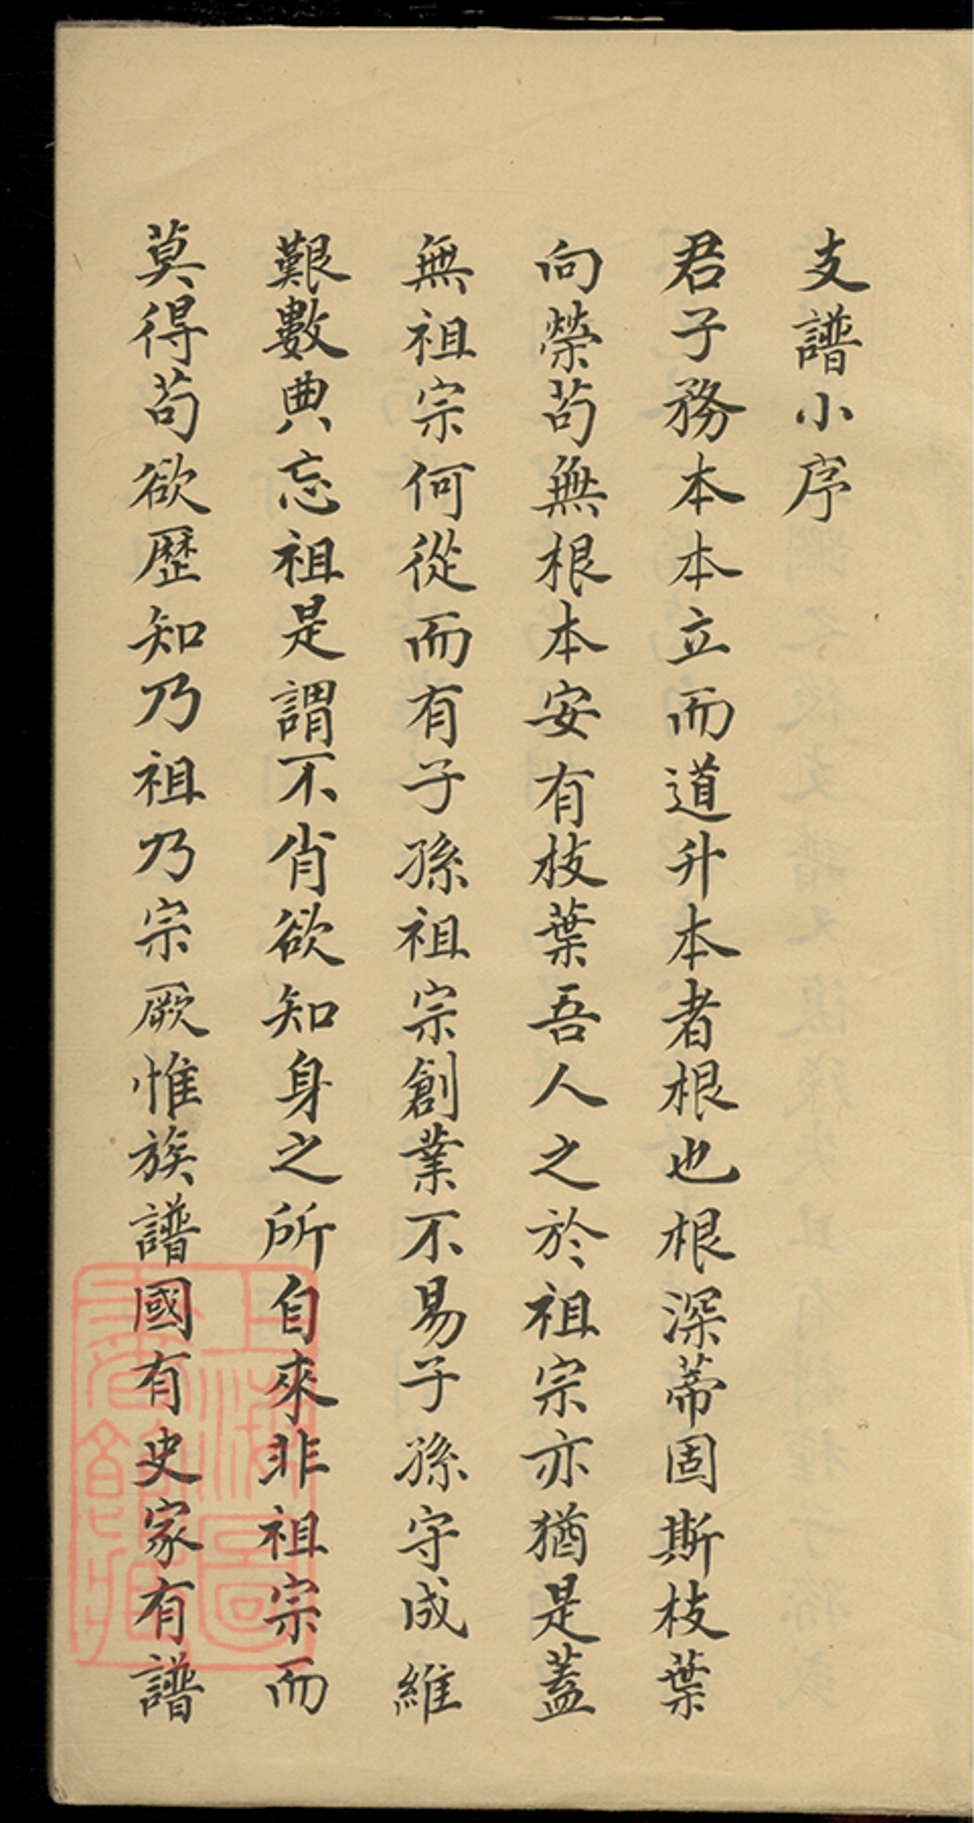 支譜小序
君子務本本立而道升本者根也根深蒂固斯枝葉
向榮苟無根本安有枝葉吾人之於祖宗亦猶是蓋
無祖宗何從而有子孫祖宗創業不易子孫守成維
艱數典忘祖是謂不肖欲知身之所自來非祖宗而
莫得苟欲歷知乃祖乃宗厥惟族譜國有史家有譜
上海圖書館藏